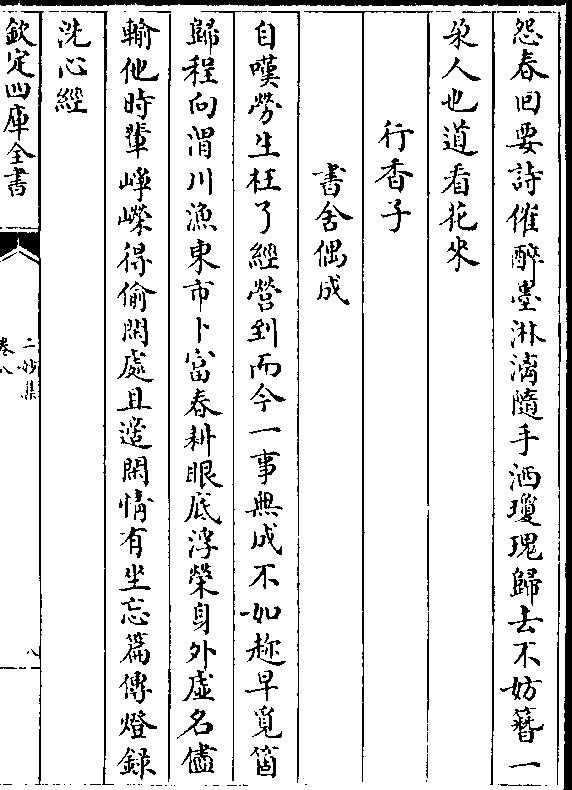 怨春回要詩催醉墨淋漓隨手洒瓊瑰歸去不妨簮一
朶人也道看花來
行香子
書舍偶成
自嘆勞生枉了經營到而今一事無成不如趂早覓箇
歸程向渭川漁東市卜富春耕眼底浮榮身外虛名儘
輸他時輩崢嶸得偷閑處且適閑情有坐忘篇傳燈錄
洗心經
欽定四庫全書
二妙集
卷八
八